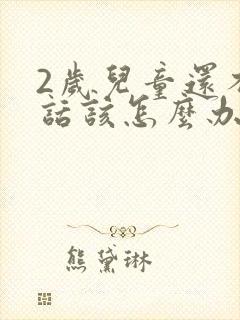 2歲兒童還
話該怎麼办
熊黛琳